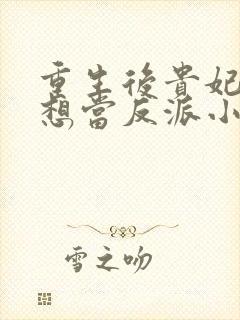 重生後貴妃
想當反派小
雪之吻